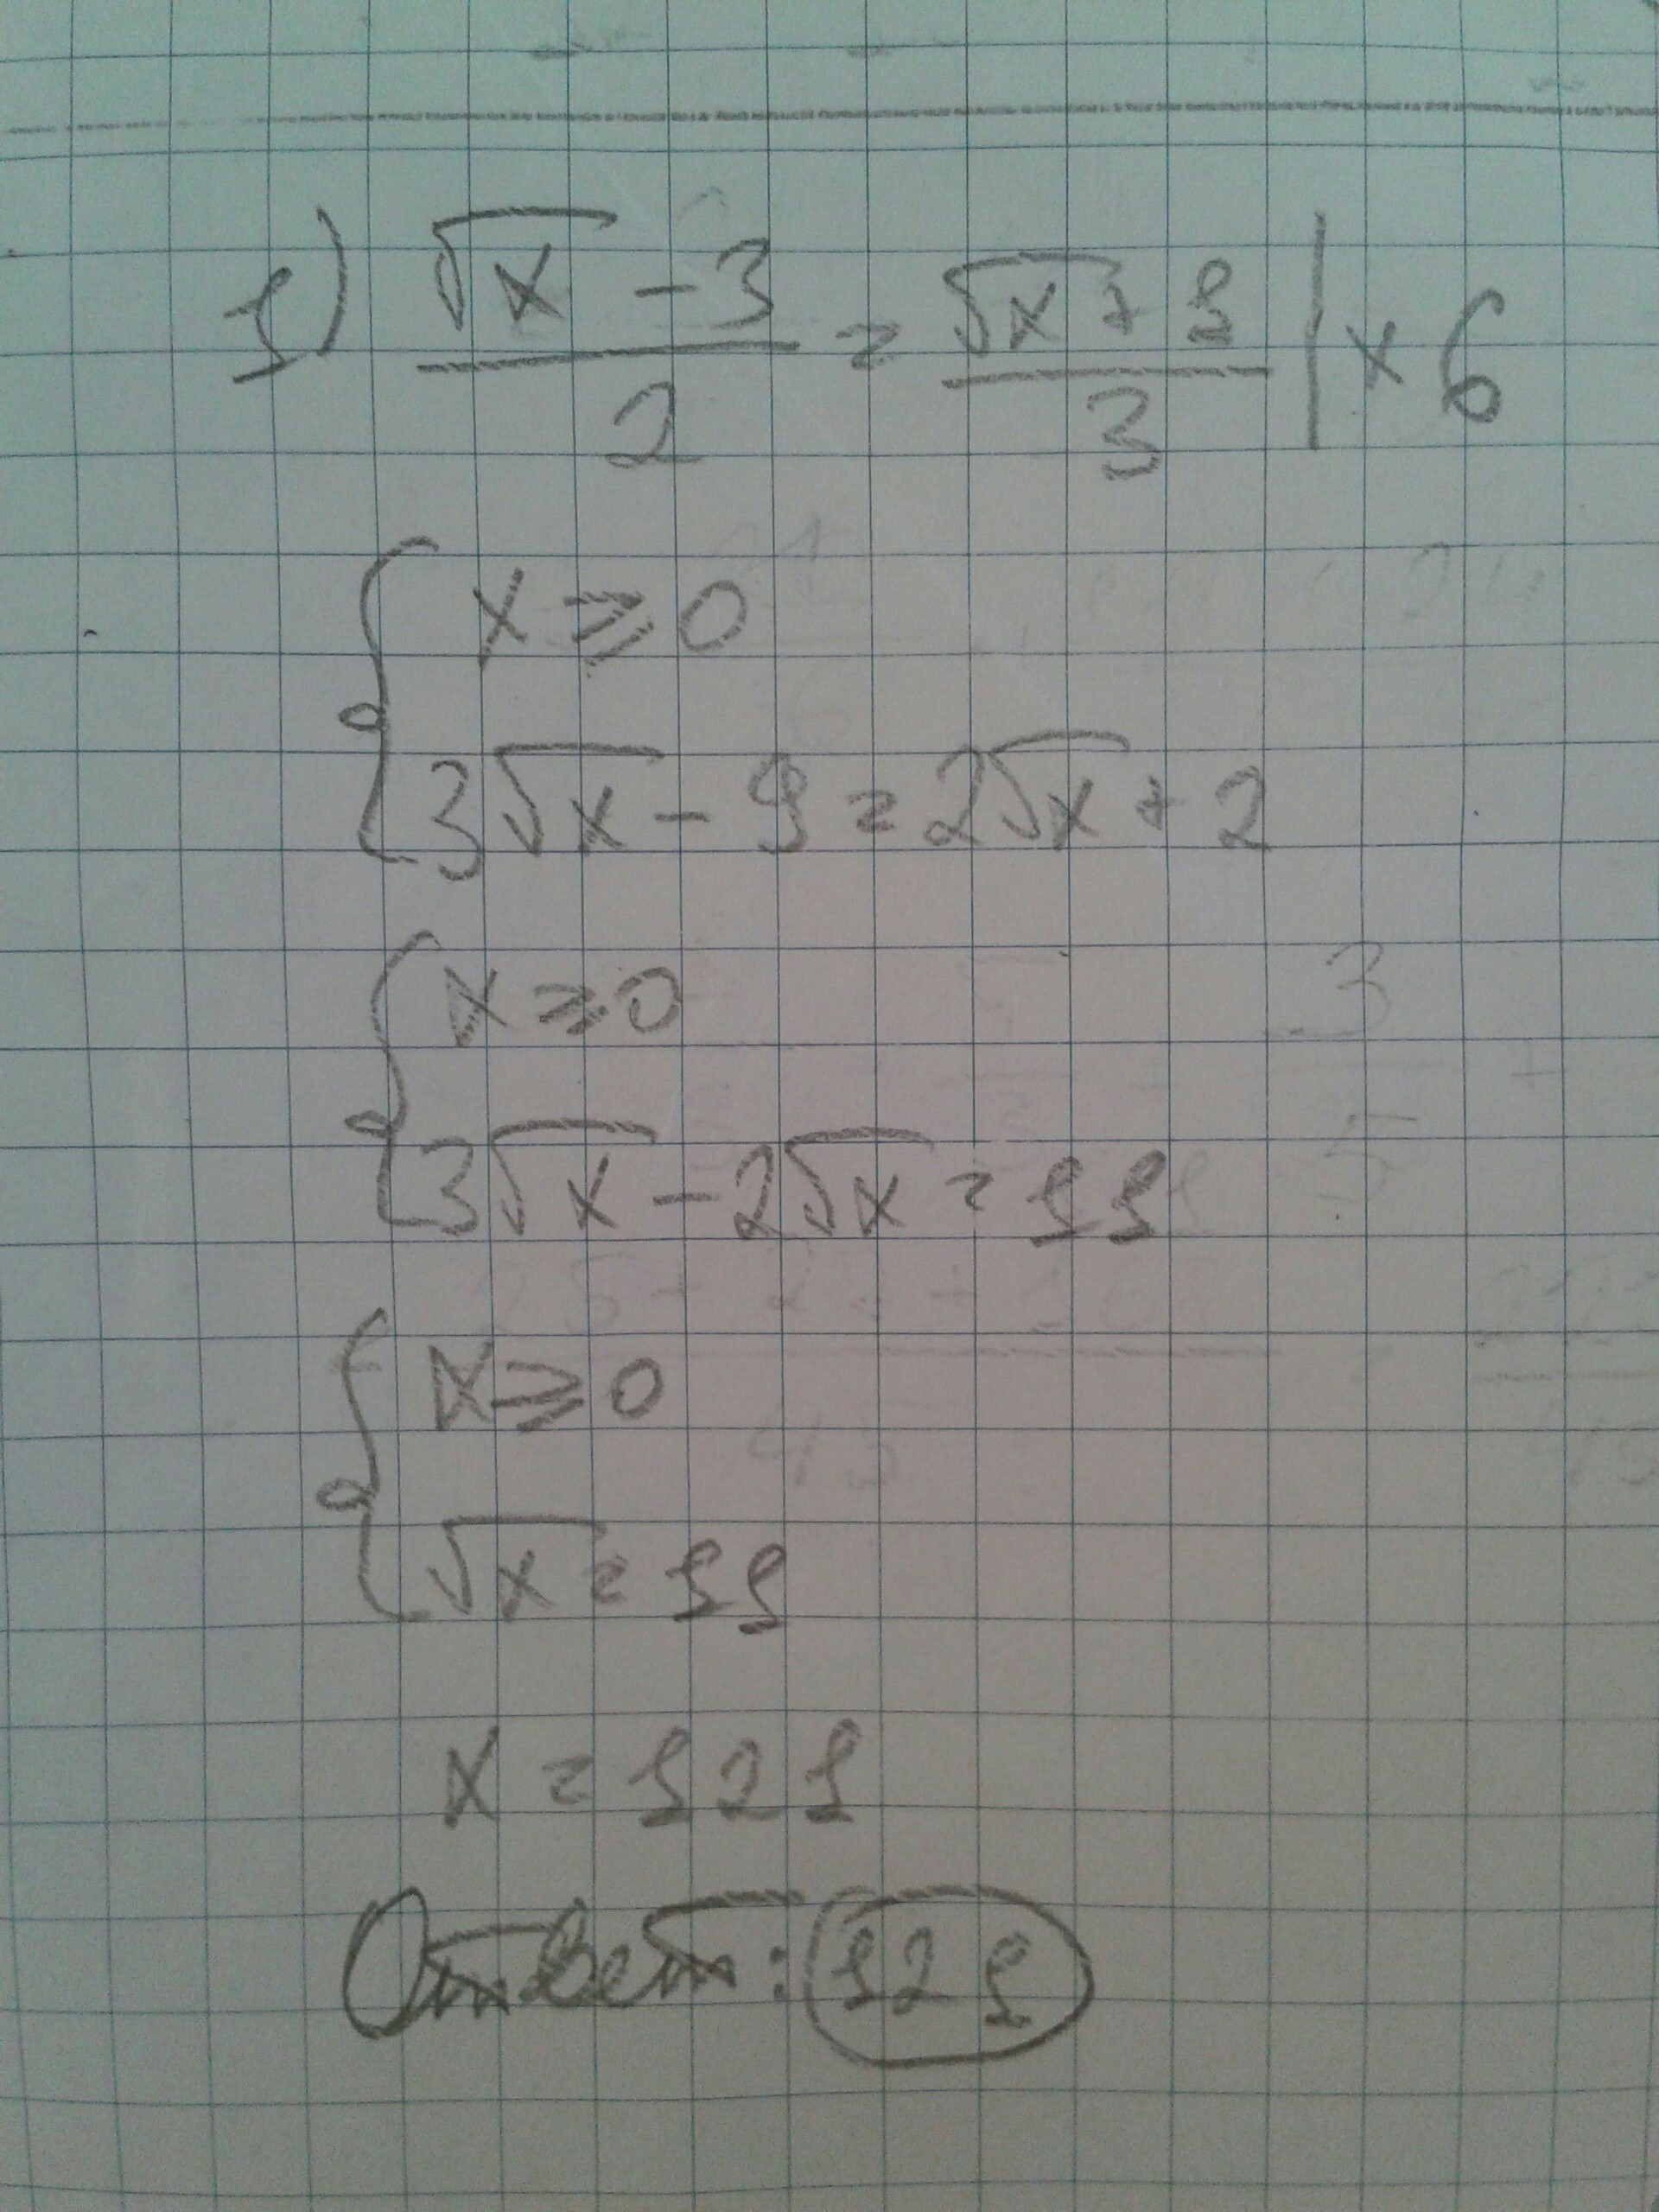 1) (√x - 3)/2 = (√x + 1)/3 | × 6
{ x ≥ 0
3√x - 9 = 2√x + 2
{ x ≥ 0
3√x - 2√x = 11
{ x ≥ 0
√x = 11
x = 121
Ответ: 121